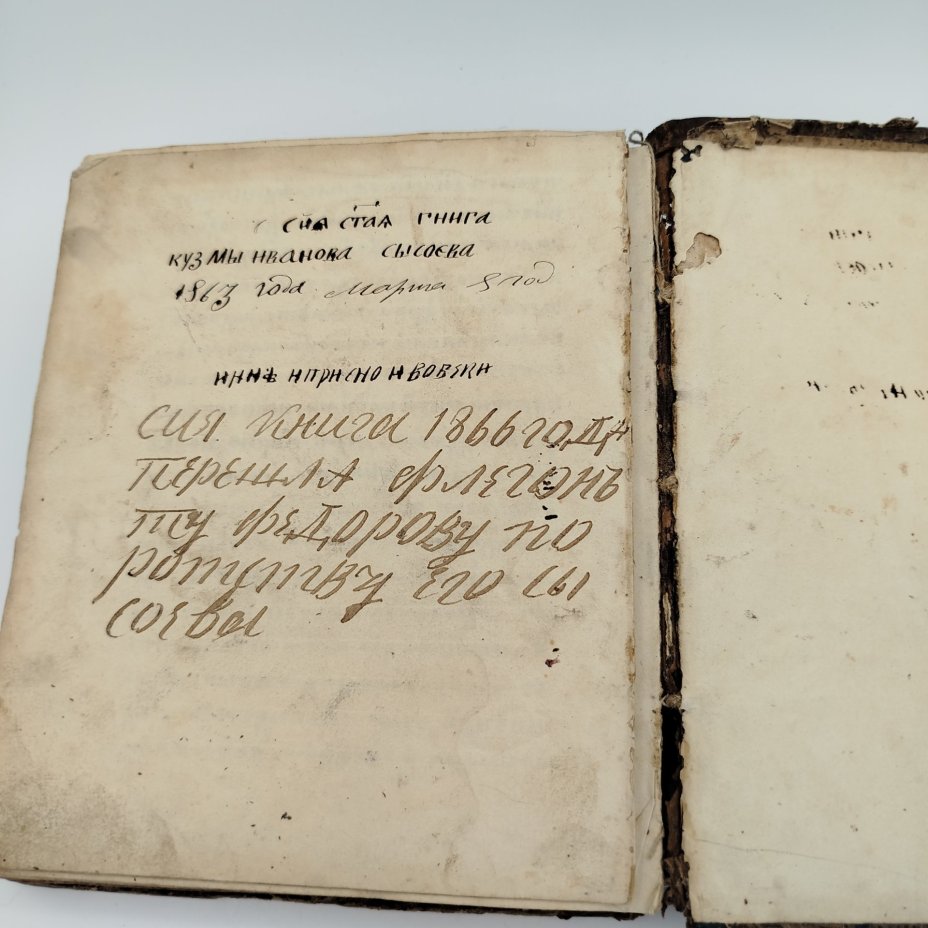 сия стая гнига
кузмы иванова сысоева
1863 года Марта 5 год
ннѣ и присно и вовяки
сия книга 1866 года
перешла флегонъ
ту федорову по
ротству его сы
соевы